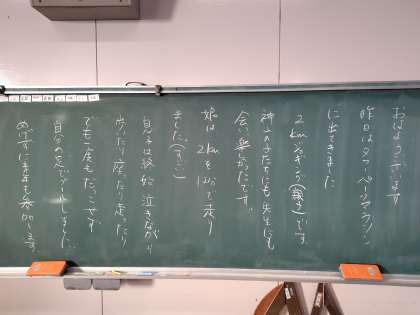 おはようございます
昨日はタケペーマラソン
に出てきました
2kmですが(親子)です
神子の子たちにも先生にも
会い楽しかったです。
娘は2kmを12分で走り
ました(すごい)
息子は終始泣きながら
歩いたり座ったり走ったり
でも一度もだっこせず
自分の足でゴールしました。
めげずに来年も参加します。